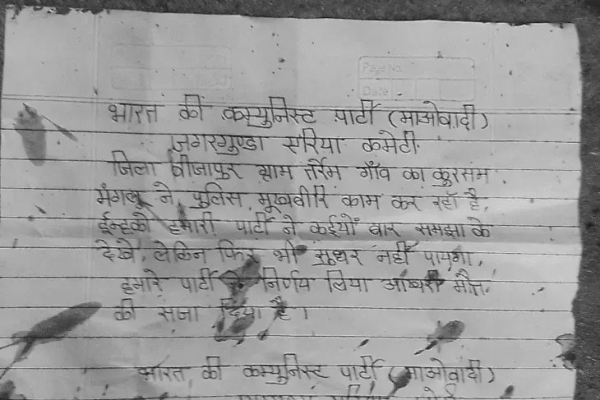 Page No.
Date
भारत की कम्युनिस्ट पार्टी (माओवादी)
जगरगुण्डा एरिया कमेटी.
जिला बीजापुर ग्राम तर्रेम गाँव का कुरसम
मंगलू ने पुलिस मुखबीरि काम कर रहाँ है,
ईन्हको हमारी पार्टी ने कईयों बार समझा के
देखे, लेकिन फिर भी सुधर नहीं पायगा,
हमारे पार्टी ने निर्णय लिया आखरी मौत
की सजा दिया है।
भारत की कम्युनिस्ट पार्टी (माओवादी)